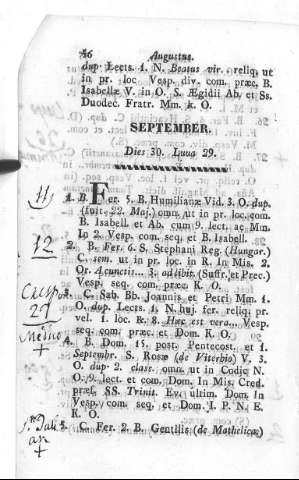 86 Augustus.
dup Lects. 1. N. Beatus vir. reliq, ut
in pr. loc Vesp. div. com. præc. B.
Isabellæ V. in O. S. Ægidii Ab. et Ss.
Duodec. Fratr. Mm. k. O.
SEPTEMBER.
Dies 30. Luna 29.
11
1. B. Fer. 5. B. Humilianæ Vid. 3. O. dup.
(fuit 22. Maj.) omn. ut in pr. loc. com.
B. Isabell et Ab. cum 9. lect. ac Mm.
In 2. Vesp. com. seq. et B. Isabell.
12
2. B. Fer. 6 S. Stephani Reg. (Hungar.)
C. sem. ut in pr. loc. in R. In Mis. 2.
Or. A cunctis... 3. ad libit. (Suffr. et Prec.)
Vesp. seq. com. præc. K. O.
3. C. Sab. Bb. Joannis et Petri Mm. 1.
O. dup. Lects. 1. N. huj. fer. reliq. pr.
vel. 1. loc. & 8. Hæc est vera... Vesp.
seq. com. præc. et Dom. K. O.
4. B. Dom. 15. post. Pentecost. et 1.
Septembr. S. Rosæ (de Viterbio) V. 3.
O. dup. 2. class. omn. ut in Codic N.
O. 9. lect. et com. Dom. In Mis. Cred.
præf. SS. Trinit. Ev. ultim. Dom. In
Vesp. com. seq. et Dom. I. P. N. E.
K. O.
5. C. Fer. 2. B. Gentilis (de Mathelica)